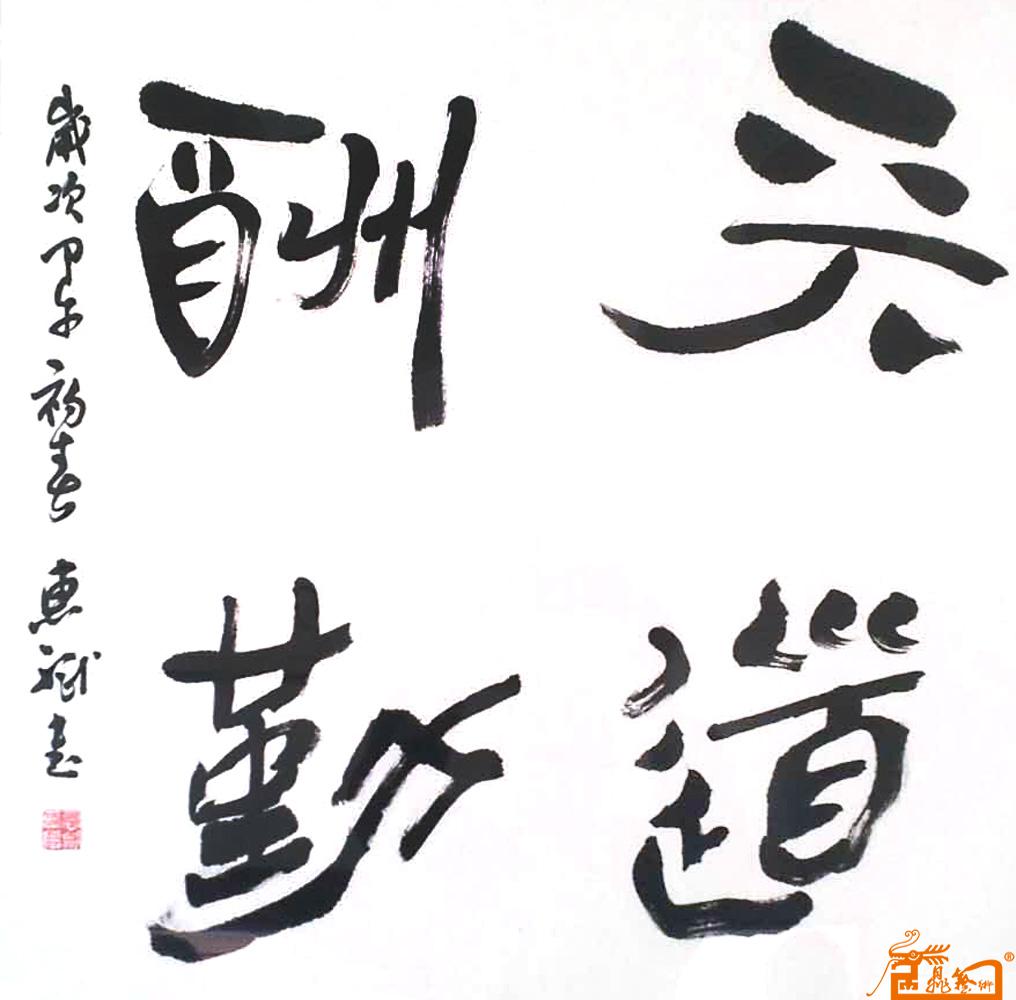 天道
酬勤
歲次甲午初春 惠斌書